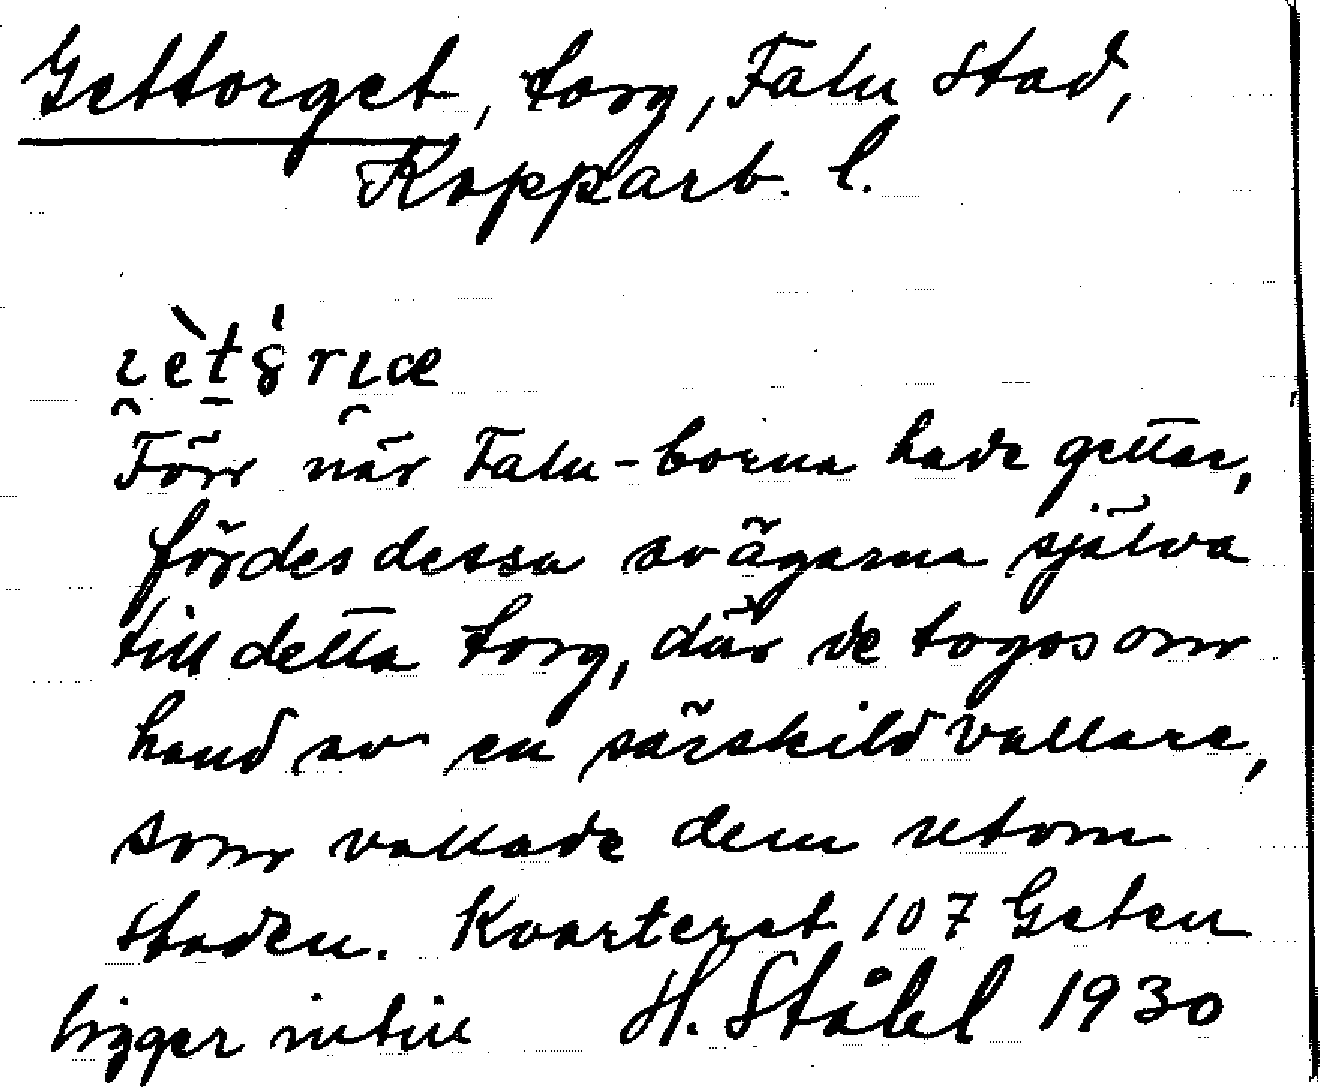 Gettorget, torg, Falu stad,
Kopparb. l.
Förr när Falu-borna hade getter,
fördes dessa av ägarna själva
till detta torg, där de togos om
hand av en särskild vallare,
som vallade dem utom
staden. Kvarteret 107 Geten
ligger intill H. Ståhl 1930